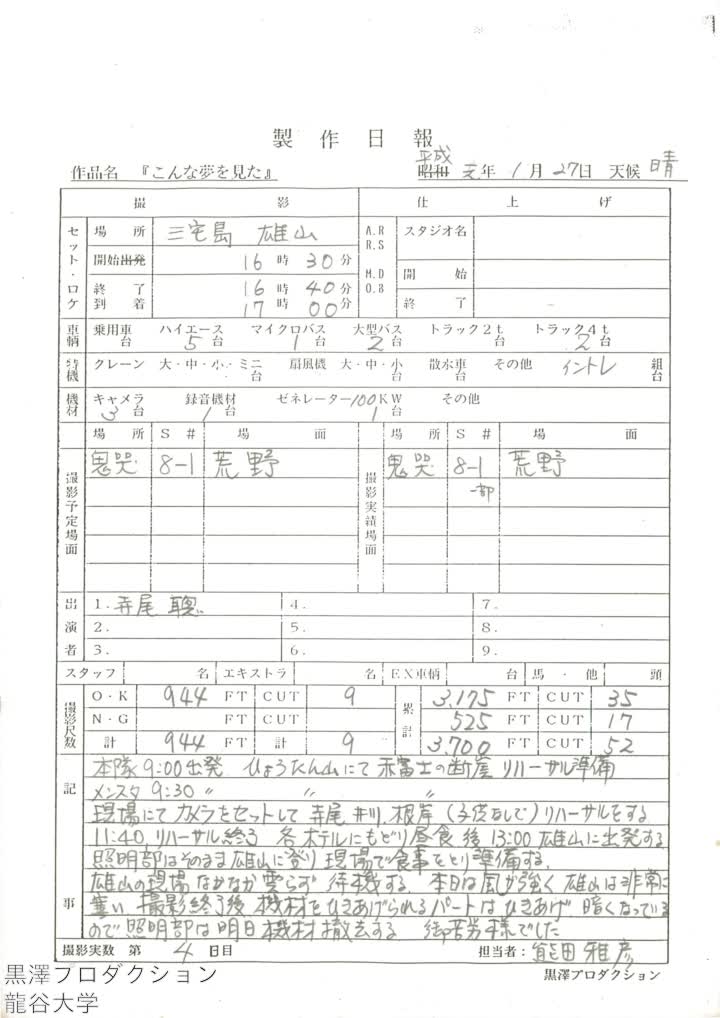 製作日報
作品名 『こんな夢を見た』 昭和 平成 元年 1月 27日 天候 晴
撮影 仕上げ
セット・ロケ 場所 三宅島 雄山 A.R R.S スタジオ名
開始出発 16時30分 M.D O.B 開始
終了 16時40分 終了
到着 17時00分
車輌 乗用車 台 ハイエース 5台 マイクロバス 1台 大型バス 2台 トラック2t 台 トラック4t 2台
特機 クレーン 大・中・小・ミニ 台 扇風機 大・中・小 台 散水車 台 その他 イントレ 組 台
機材 キャメラ 3台 録音機材 1台 ゼネレーター100KW 1台 その他
場所 S# 場面 場所 S# 場面
撮影予定場面 鬼哭 8-1 荒野 撮影実績場面 鬼哭 8-1 荒野
一部
出演者 1.寺尾 聰 4. 7.
2. 5. 8.
3. 6. 9.
スタッフ 名 エキストラ 名 EX車輌 台 馬・他 頭
撮影尺数 O・K 944 FT CUT 9 累計 3,175 FT CUT 35
N・G FT CUT 525 FT CUT 17
計 944 FT 計 9 3,700 FT CUT 52
記事 本隊 9:00出発 ひょうたん山にて 赤富士の断崖 リハーサル準備
メンスタ 9:30 〃 〃 〃
現場にてカメラをセットして 寺尾 井川,根岸(子役なしで)リハーサルをする
11:40 リハーサル終了 各ホテルにもどり昼食後 13:00 雄山に出発する
照明部はそのまま雄山に登り 現場で食事をとり準備する.
雄山の現場 なかなか曇らず 待機する. 本日は風が強く 雄山は非常に
寒い 撮影終了後 機材をひきあげられるパートはひきあげ 暗くなっている
ので照明部は明日機材は撤去する 御苦労様でした
撮影実数 第 4 日目 担当者: 熊田雅彦
黒澤プロダクション
黒澤プロダクション
龍谷大学